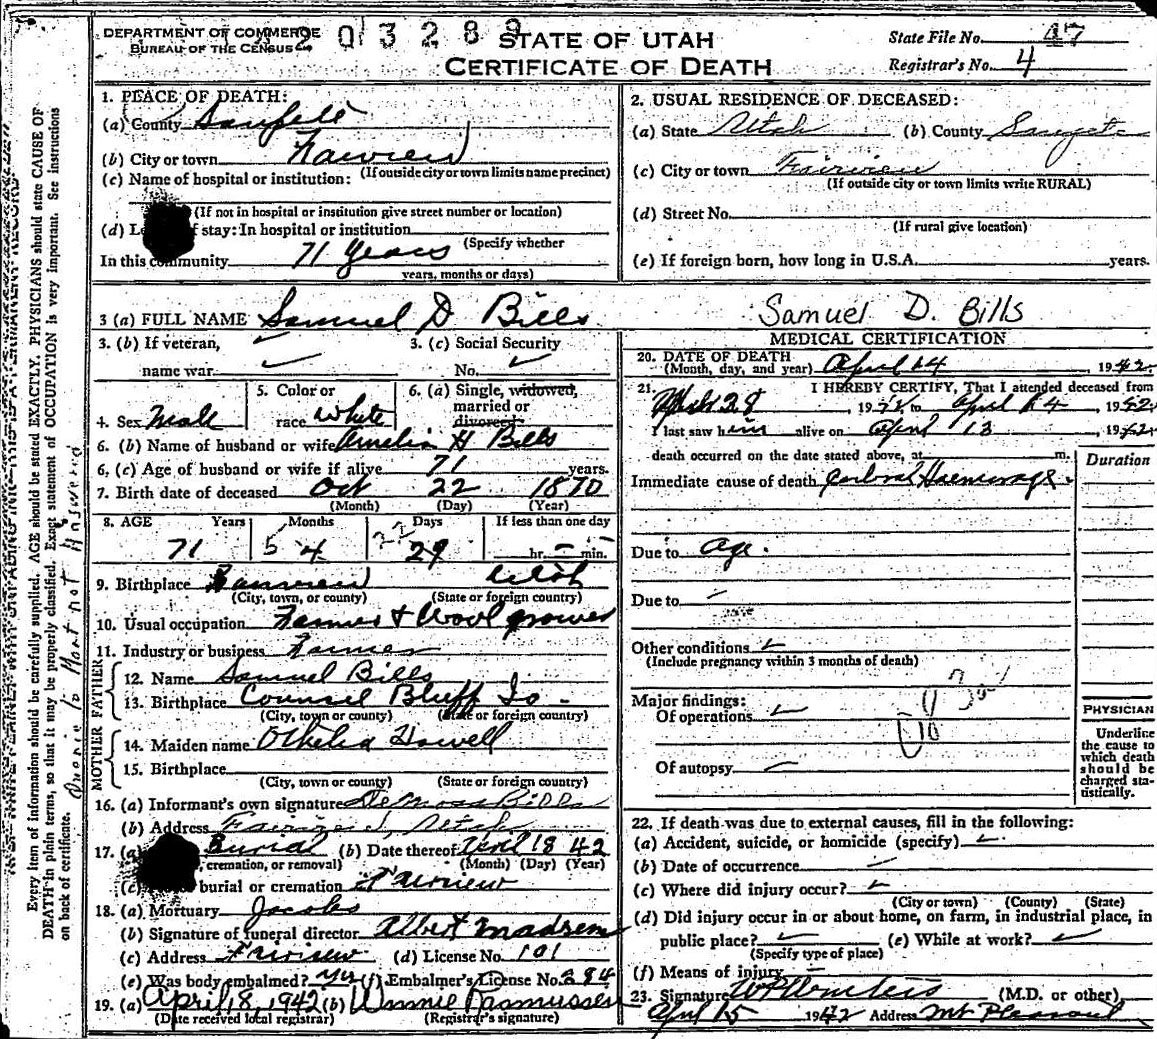 DEPARTMENT OF COMMERCE
BUREAU OF THE CENSUS
2 0 13289
STATE OF UTAH
CERTIFICATE OF DEATH
State File No. 47
Registrar's No. 4
Every item of information should be carefully supplied. AGE should be stated EXACTLY. PHYSICIANS should state CAUSE OF
DEATH in plain terms, so that it may be properly classified. Exact statement of OCCUPATION is very important. See instructions
on back of certificate.
1. PLACE OF DEATH:
(a) County Sanpete
(b) City or town Fairview
(If outside city or town limits name precinct)
(c) Name of hospital or institution:
(If not in hospital or institution give street number or location)
(d) stay: In hospital or institution
(Specify whether
In this community 71 years
years, months or days)
2. USUAL RESIDENCE OF DECEASED:
(a) State Utah (b) County Sanpete
(c) City or town Fairview
(If outside city or town limits write RURAL)
(d) Street No.
(If rural give location)
(e) If foreign born, how long in U.S.A. years.
3 (a) FULL NAME Samuel D Bills
Samuel D. Bills
3. (b) If veteran,
name war.
3. (c) Social Security
No.
4. Sex Male
5. Color or
race White
6. (a) Single, widowed,
married or
divorced
6. (b) Name of husband or wife Amelia H Bills
6. (c) Age of husband or wife if alive 71 years.
7. Birth date of deceased Oct 22 1870
(Month) (Day) (Year)
8. AGE Years Months Days If less than one day
71 5 4 22 29 hr. min.
9. Birthplace Fairview Utah
(City, town, or county) (State or foreign country)
10. Usual occupation Farmer & Wool grower
11. Industry or business Farmer
FATHER
12. Name Samuel Bills
13. Birthplace Counsel Bluff Io.
(City, town or county) (State or foreign country)
MOTHER
14. Maiden name Othelia Howell
15. Birthplace
(City, town or county) (State or foreign country)
16. (a) Informant's own signature DeMoss Bills
(b) Address Fairview, Utah
17. (a) Burial (b) Date thereof April 18 42
, cremation, or removal) (Month) (Day) (Year)
(c) burial or cremation Fairview
18. (a) Mortuary Jacobs
(b) Signature of funeral director Albert Madsen
(c) Address Fairview (d) License No. 101
(e) Was body embalmed? yes (f) Embalmer's License No. 284
19. (a) April 18, 1942 (b) Winnie Rasmussen
(Date received local registrar) (Registrar's signature)
MEDICAL CERTIFICATION
20. DATE OF DEATH
(Month, day, and year) April 14, 1942.
21. I HEREBY CERTIFY, That I attended deceased from
March 28, 1942 to April 14, 1942.
I last saw him alive on April 13, 1942.
death occurred on the date stated above, at m.
Duration
Immediate cause of death Cerbral Haemorage
Due to age.
Due to
Other conditions
(Include pregnancy within 3 months of death)
Major findings:
Of operations
Of autopsy
PHYSICIAN
Underline
the cause to
which death
should be
charged sta-
tistically.
22. If death was due to external causes, fill in the following:
(a) Accident, suicide, or homicide (specify)
(b) Date of occurrence
(c) Where did injury occur?
(City or town) (County) (State)
(d) Did injury occur in or about home, on farm, in industrial place, in
public place? (e) While at work?
(Specify type of place)
(f) Means of injury
23. Signature (M.D. or other)
April 15 1942 Address Mt Pleasant